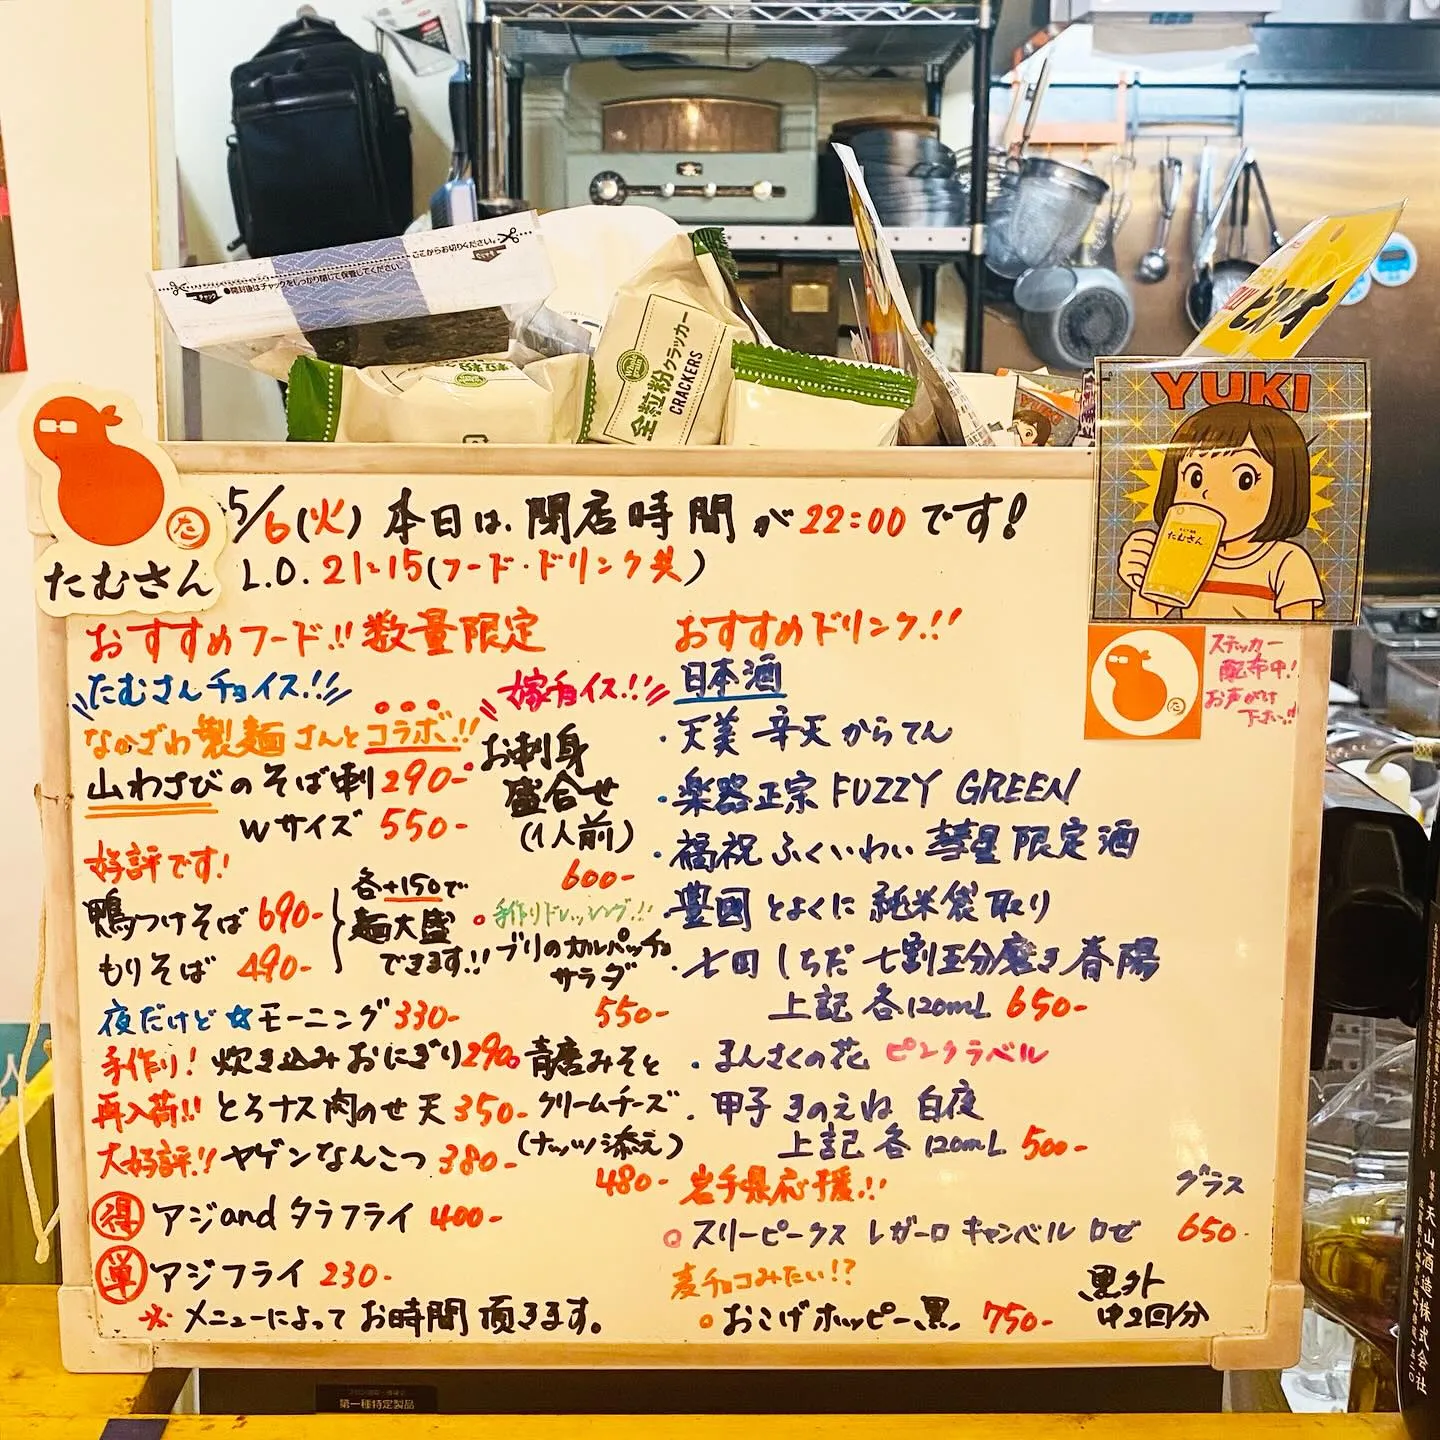 ここからお切りください。
チャック
●開封後はチャックをしっかり閉じて保管してください。
全粒粉クラッカー
CRACKERS
YUKI
たむさん
た
たむさん
5/6(火) 本日は、閉店時間が22:00です!
L.O. 21:15(フード・ドリンク共)
おすすめフード!! 数量限定
たむさんチョイス!!
なかざわ製麺さんとコラボ!!
山わさびのそば刺 290-
Wサイズ 550-
好評です!
鴨つけそば 690-
もりそば 490-
各+150で
麺大盛
できます!!
夜だけど☆モーニング 330-
手作り! 炊き込みおにぎり 290
再入荷!! とろナス肉のせ天 350-
大好評!! ヤゲンなんこつ 380-
得 アジandタラフライ 400-
単 アジフライ 230-
※ メニューによってお時間頂きます。
嫁チョイス!!
お刺身
盛合せ
(1人前)
600-
手作りドレッシング!!
ブリのカルパッチョ
サラダ
550-
青唐みそと
クリームチーズ
(ナッツ添え)
480-
おすすめドリンク!!
日本酒
・天美 辛天 からてん
・楽器正宗 FUZZY GREEN
・福祝 ふくいわい 彗星 限定酒
・豊國 とよくに 純米袋取り
・七田 しちだ 七割五分磨き 春陽
上記 各120mL 650-
・まんさくの花 ピンクラベル
・甲子 きのえね 白夜
上記 各120mL 500-
岩手県応援!!
グラス
スリーピークス レガーロ キャンベル ロゼ 650-
麦チョコみたい!?
おこげホッピー黒 750-
黒外
中2回分
た
ステッカー
配布中!
お声がけ
下さい!!
第一種特定製品
天山酒造株式会社